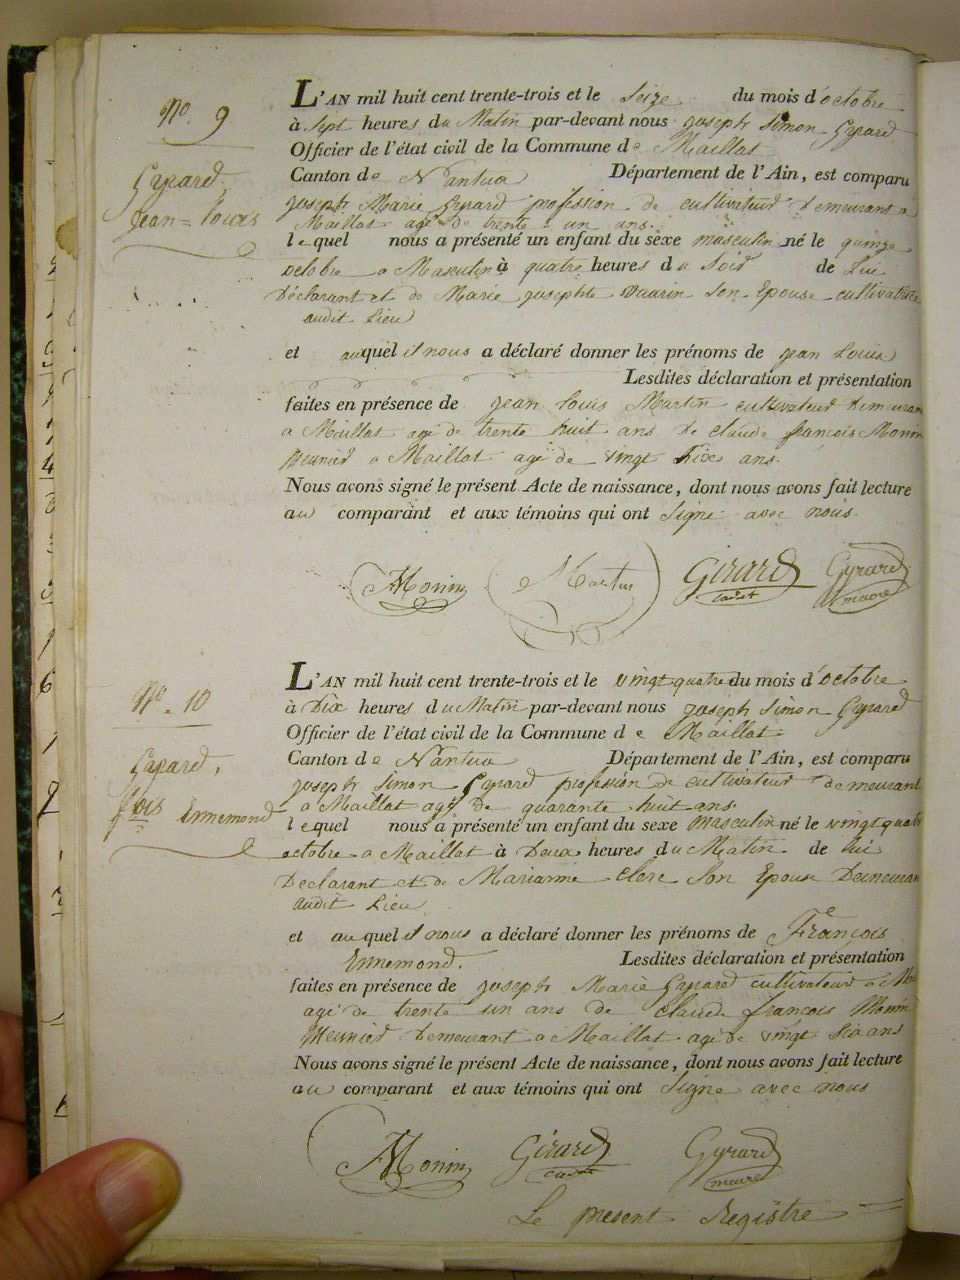 No. 9
Gyrard,
Jean = Louis
L'AN mil huit cent trente-trois et le Seize du mois d'octobre
à Sept heures du Matin par-devant nous joseph Simon Gyrard
Officier de l'état civil de la Commune de Maillat
Canton de Nantua Département de l'Ain, est comparu
joseph Marie Gyrard profession de cultivateur demeurant a
Maillat agé de trente un ans.
lequel nous a présenté un enfant du sexe masculin né le quinze
octobre a à quatre heures du Soir de Lui
Déclarant et de Marie josephte Son Epouse cultivatrice
audit Lieu
et auquel il nous a déclaré donner les prénoms de jean Louis
Lesdites déclaration et présentation
faites en présence de jean louis Martin cultivateur demeuran
a Maillat agé de trente huit ans de claude françois Monin
Meunier a Maillat agé de vingt ans.
Nous avons signé le présent Acte de naissance, dont nous avons fait lecture
au comparant et aux témoins qui ont Signé avec nous.
Monin Martin Girard cadet Gyrard maire
No. 10
Gyrard,
fois Ennemond
L'AN mil huit cent trente-trois et le vingt quatre du mois d'octobre
à Dix heures du Matin par-devant nous joseph Simon Gyrard
Officier de l'état civil de la Commune de Maillat
Canton de Nantua Département de l'Ain, est comparu
joseph Simon Gyrard profession de cultivateur demeurant
a Maillat agé de quarante huit ans
lequel nous a présenté un enfant du sexe masculin né le vingt quatr
octobre a Maillat à Deux heures du Matin de lui
Declarant et de Marianne clerc Son Epouse Demeuran
audit Lieu
et auquel il nous a déclaré donner les prénoms de François
Ennemond. Lesdites déclaration et présentation
faites en présence de joseph Marie Gyrard cultivateur a
agé de trente un ans de claude françois Monin
Meunier demeurant a Maillat agé de vingt Six ans
Nous avons signé le présent Acte de naissance, dont nous avons fait lecture
au comparant et aux témoins qui ont Signé avec nous
Monin Girard cadet Gyrard maire
Le present Registre